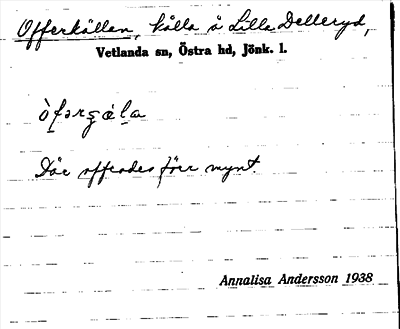 Offerkällan, källa å Lilla Delleryd,
Vetlanda sn, Östra hd, Jönk. l.
òfərʂäla
Där offrades förr mynt.
Annalisa Andersson 1938